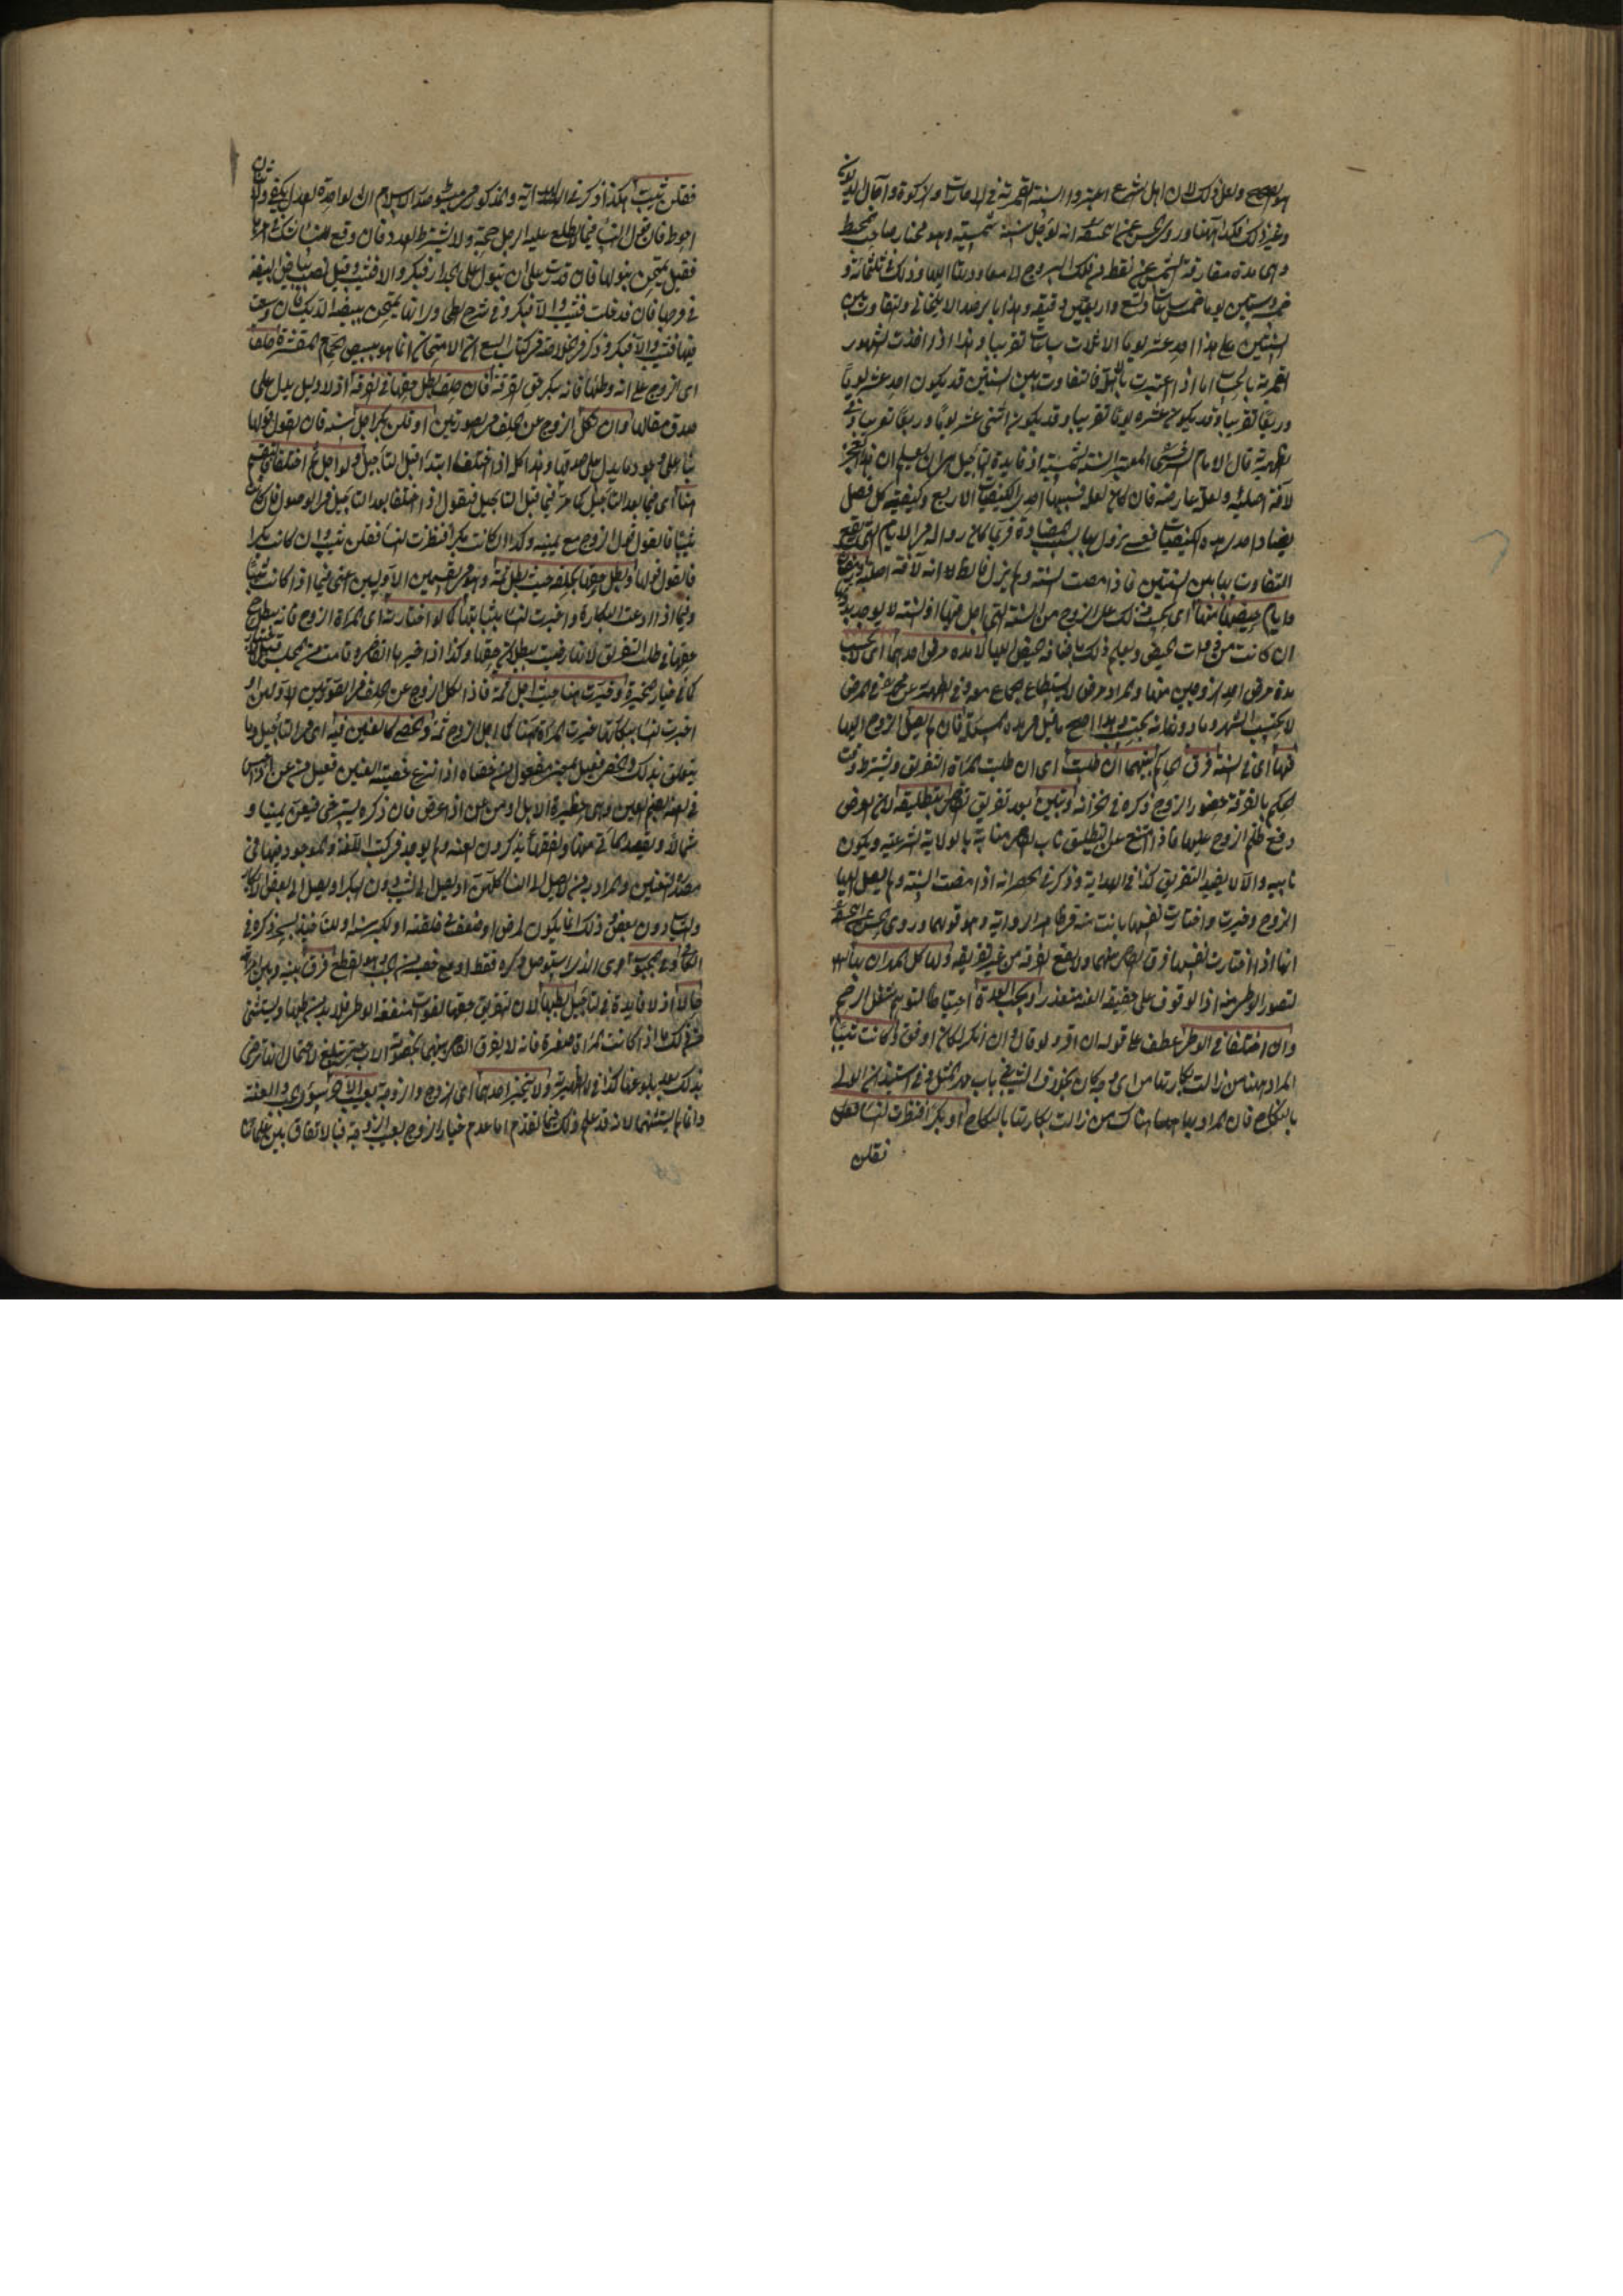 هو الصحيح ولعل ذلك لان اهل الشرع اعتبروا السنة القمرية في الاحداث والزكوة وآجال الديون
وغير ذلك فكذا ههنا وروى الحسن عن ابي حنيفة انه يؤجل سنة شمسية وهو مختار صاحب المحيط
وهي مدة مفارقة الشمس عن نقطة من فلك البروج الى معاودتها اليها وذلك في ثلثمائة و
خمسة وستين يوما وخمس ساعات وتسع واربعين دقيقة وهذا برصد الايلخاني والتفاوت بين
السنتين على هذا احد عشر يوما الا ثلاث ساعات تقريبا وهذا اذا اخذت الشهور
القمرية بالحساب اما اذا اعتبرت بالاهلة فالتفاوت بين السنتين قد يكون احد عشر يوما
وربعا تقريبا وقد يكون عشرة يوما تقريبا وقد يكون اثنى عشر يوما وربعا تقريبا وفي
الظهيرية قال الامام السرخسي المعتبر السنة الشمسية اذ فايدة التاجيل هو ان يعلم ان هذا العجز
لآفة اصلية او لعلة عارضة فان كان لعلة فسببها احدى الكيفيات الاربع وكيفية كل فصل
يضاد احدى هذه الكيفيات فعسى يزول بها بسبب المضادة فربما كان زواله في الايام التي يقع
التفاوت بها بين السنتين فاذا مضت السنة ولم يزل فالظاهر انه لآفة اصلية ورمضان
وايام حيضها منها اى يحسب ذلك على الزوج من السنة التي اجل فيها اذ السنة لا يوجد بدونها
ان كانت من ذوات الحيض ويعلم ذلك باضافة الحيض اليها لا مدة مرض احدهما اى لا يحسب
مدة مرض احد الزوجين منها والمراد مرض لا يستطاع الجماع معه وفي الظهيرية عن محمد في المرض
لا يحتسب الشهر وما دونه يحتسب وهذا اصح ما قيل في هذه المسئلة فان لم يصل الزوج اليها
فيها اى في السنة فرق الحاكم بينهما ان طلبت اى ان طلبت المرأة التفريق ويشترط وقت
الحكم بالفرقة حضور الزوج ذكره في الخزانة وتبين بعد تفريق القاضي بتطليقة لان الغرض
دفع ظلم الزوج عليها فاذا امتنع عن التطليق ناب القاضي منابه بالولاية الشرعية ويكون
نايبه والا لا يفيد التفريق كذا في الهداية وذكر في الحصر انه اذا مضت السنة ولم يصل اليها
الزوج وخيرت واختارت نفسها بانت منه في ظاهر الرواية وهو قولهما وروى الحسن عن ابي حنيفة
انها اذا اختارت نفسها فرق القاضي بينهما ولا يقع الفرقة من غير تفريقه ولها كل المهر ان خلا بها
لتصور الوطئ منه اذ الوقوف على حقيقة العنة متعذر ويجب العدة احتياطا لتوهم شغل الرحم
وان اختلفا في الوطئ عطف على قوله ان اقر ولو قال وان انكر لكان اوفق وكانت ثيبا
المراد ههنا من زالت بكارتها من اى وجه كان بخلاف الثيب في باب مهر المثل وفي استيذان الولي
بالنكاح فان المراد بها هناك من زالت بكارتها بالنكاح او بكرا فنظرت النساء فقلن
فقلن
فقلن ثيب هكذا ذكر في الهداية والمذكور في مبسوط صدر الاسلام ان الواحدة العدل يكفي والاثنتان
احوط فان قول النساء فيما لا يطلع عليه الرجل حجة ولا يشترط العدد فان وقع للنساء شك في امرها
فقيل يمتحن ببولها فان قدرت على ان تبول على الجدار فبكر والا فثيب وقيل تصب بياض البيضة
في فرجها فان دخلت فثيب والا فبكر وفي شرح الطحاوي انها يمتحن ببيضة الديك فان وسعت
فيها فثيب والا فبكر وذكر في الخلاصة في كتاب البيع ان الامتحان انما هو ببيض الحمام المقشرة حلف
اى الزوج على انه وطئها فانه ينكر حق الفرقة فان حلف بطل حقها في الفرقة اذ لا دليل يدل على
صدق مقالها وان نكل الزوج عن الحلف في الصورتين او قلن بكر اجل سنة فان القول قولها
بناء على وجود ما يدل على صدقها وهذا كله اذا اختلفا ابتداء قبل التاجيل ولو اجل ثم اختلفا فالتقسيم
هنا اى فيما بعد التاجيل كما مر فيما قبل التاجيل فيقول اذا اختلفا بعد التاجيل في الوصول فان كانت
ثيبا فالقول قول الزوج مع يمينه وكذا ان كانت بكرا فنظرت النساء فقلن ثيب وان كانت بكرا
فالقول قولها وبطل حقها بحلفه حيث بطل ثمة وهو في القسمين الاولين اعنى فيما اذا كانت ثيبا
وفيما اذا ادعت البكارة واخبرت النساء بثيابتها كما لو اختارته اى المرأة الزوج فانه يبطل
حقها في طلب التفريق لانها رضيت ببطلان حقها وكذا اذا خيرها القاضي وقامت من المجلس قبل الاختيار
كما في خيار المخيرة وخيرت هنا حيث اجل ثمة فاذا نكل الزوج عن الحلف في الصورتين الاولين او
اخبرت النساء ببكارتها خيرت المرأة هنا كما اجل الزوج ثمة والخصي كالعنين فيه اى في التاجيل وما
يتعلق بذلك والخصي فعيل بمعنى مفعول من خصاه اذا نزع خصيته والعنين فعيل من عن اذا حبس
في العنة بضم العين وهي حظيرة الابل او من عن اذا عرض فان ذكره يسترخي فيعن يمينا و
شمالا ولا يقصد المأتى منها والفقهاء يذكرون العنة ولم يوجد في كتب اللغة والموجود فيها في
مصدره التعنين والمراد به من لا يصل الى النساء كلهن او يصل الى الثيب دون البكر او يصل الى بعض الابكار
والنساء دون بعض وذلك انما يكون لمرض او ضعف في خلقته او لكبر سنه او للاخيذ بسحر ذكره في
الكافي وفي المجبوب اى الذي استؤصل ذكره فقط او مع خصيته من الجب وهو القطع فرق بينه وبين امرأته
حالا اذ لا فايدة في التاجيل بطلبها لان التفريق حقها لفوات منفعة الوطئ فلا بد من طلبها ويستثنى
من ذلك ما اذا كانت المرأة صغيرة فانه لا يفرق القاضي بينهما بخصومة الاب حتى تبلغ لاحتمال انها ترضى
بذلك بعد بلوغها كذا في الظهيرية ولا يتخير احدهما اى الزوج والزوجة بعيب الآخر سوى الجب والعنة
وانما لم يستثنهما لانه قد علم ذلك مما تقدم اما عدم خيار الزوج بعيب الزوجة فبالاتفاق بين علمائنا